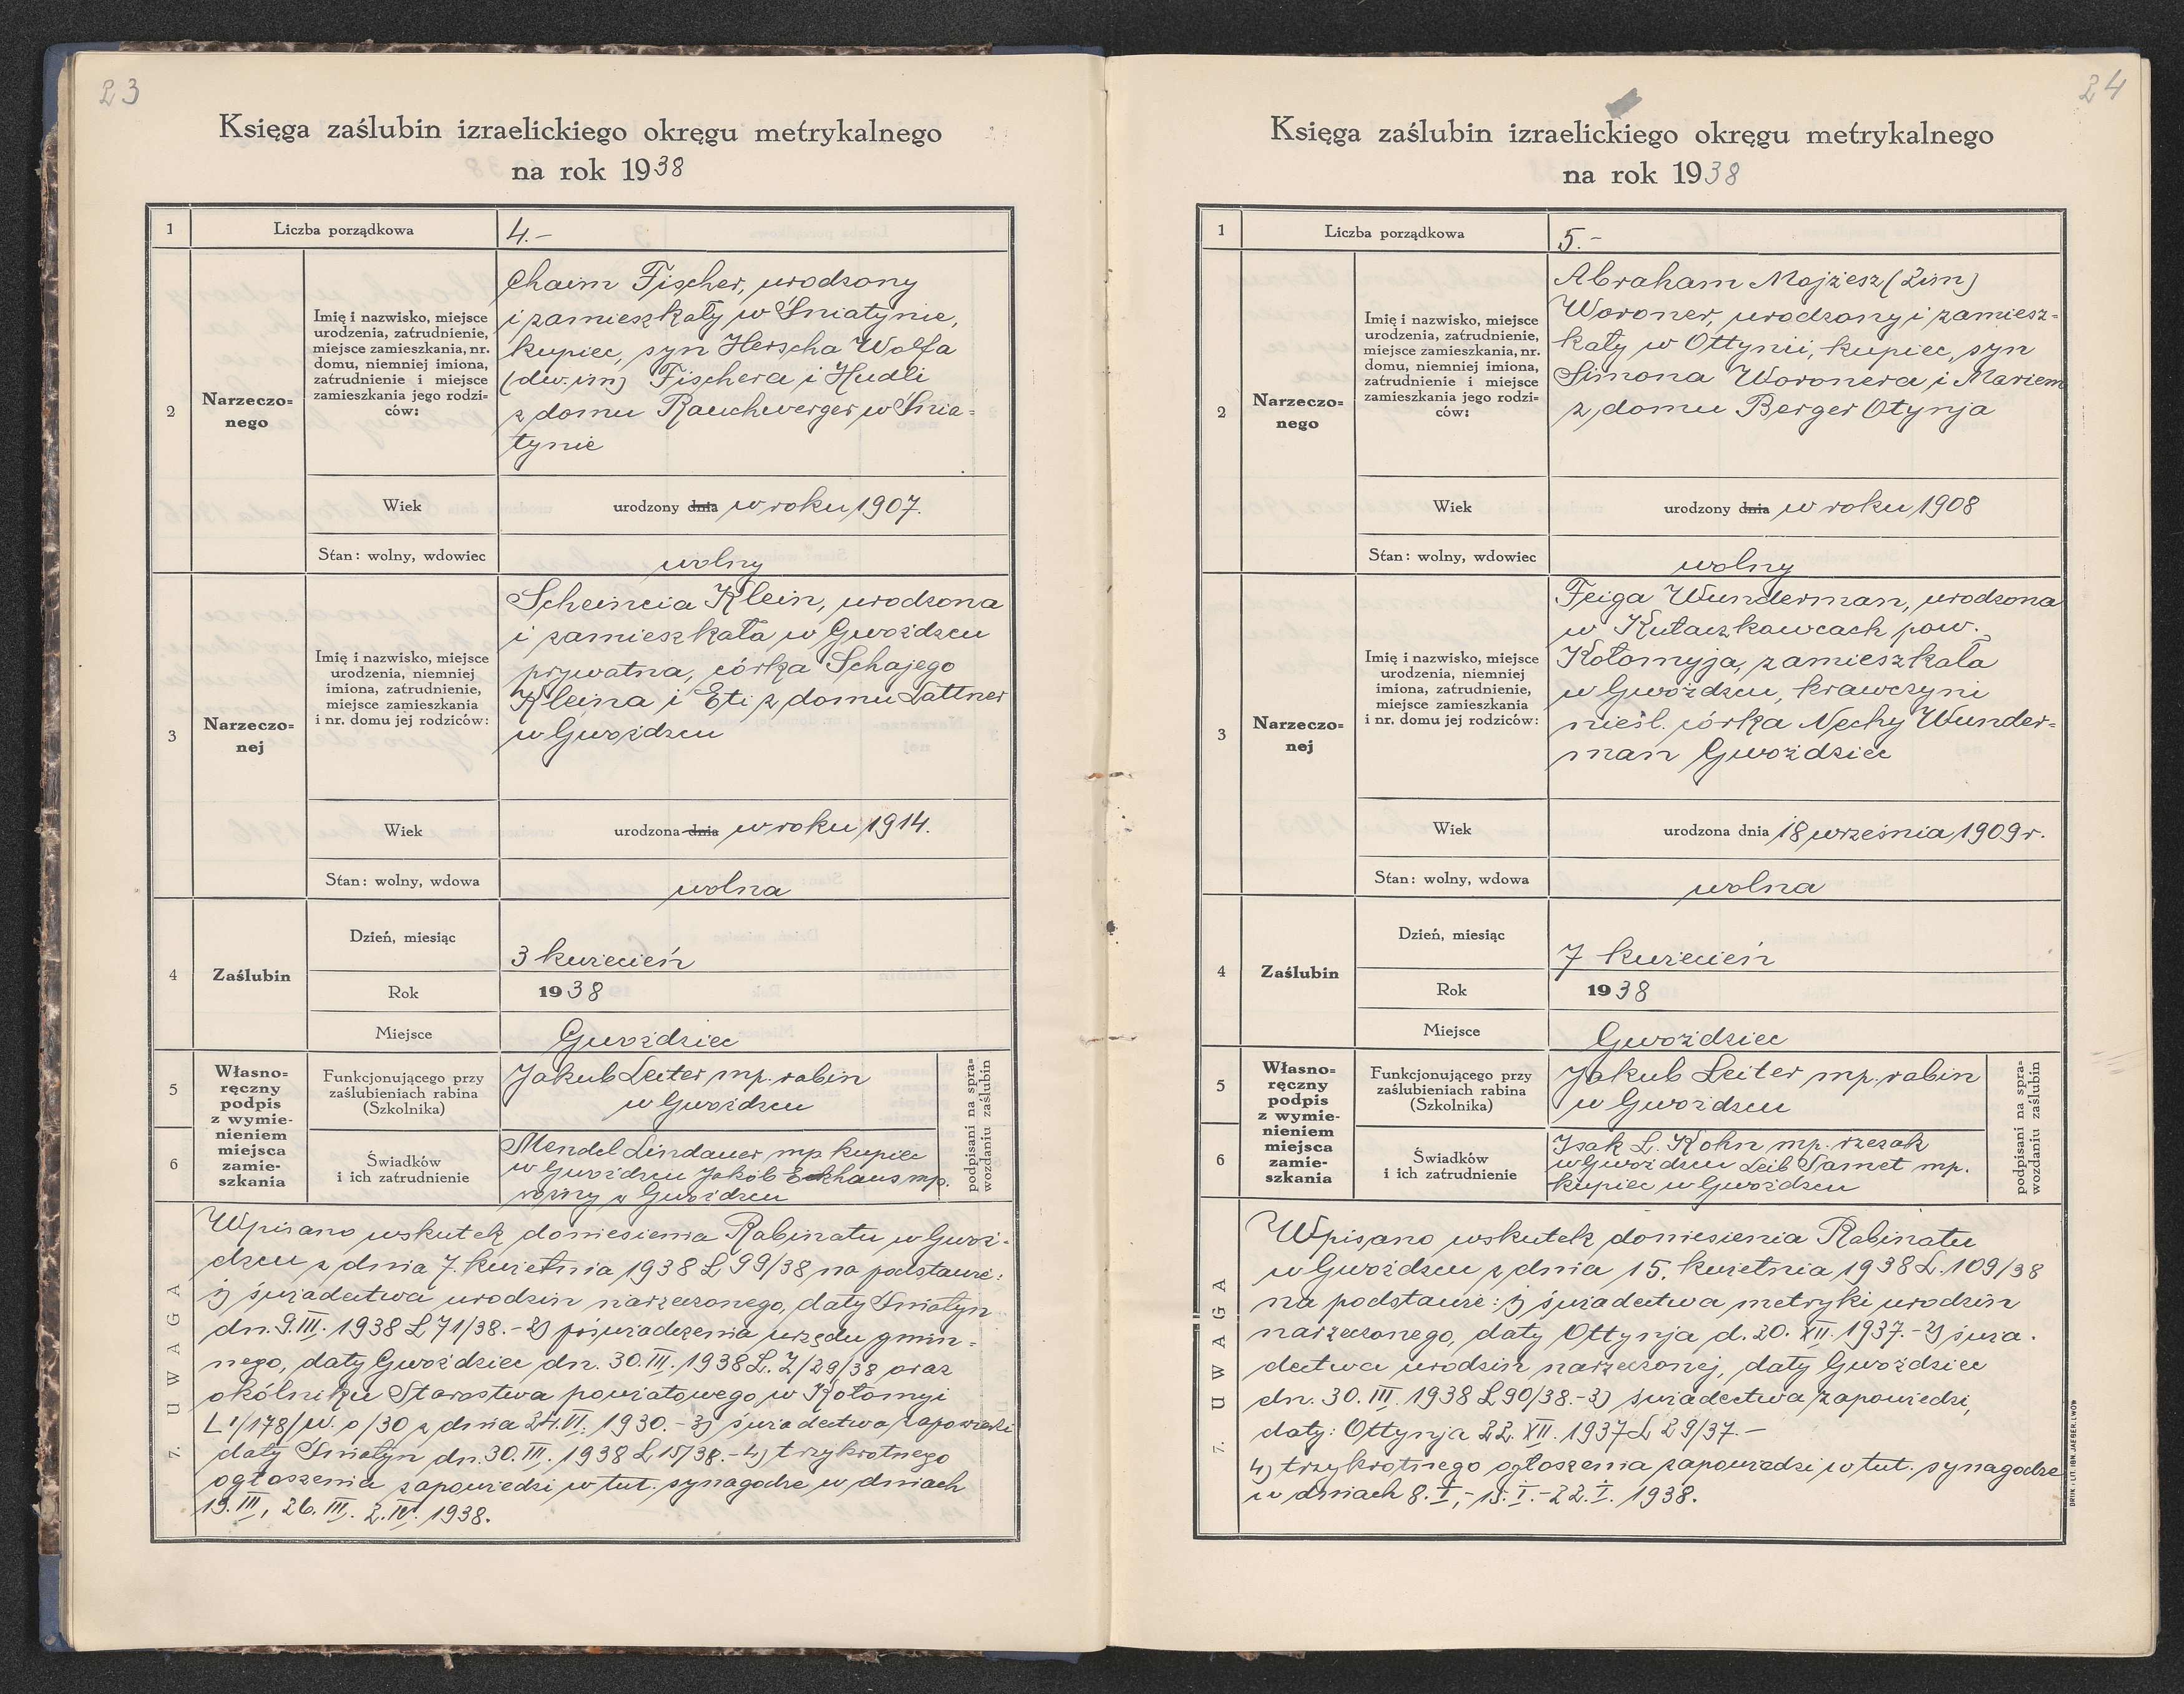 23
Księga zaślubin izraelickiego okręgu metrykalnego
na rok 1938
1
Liczba porządkowa
4.-
2
Narzeczo=
nego
Imię i nazwisko, miejsce
urodzenia, zatrudnienie,
miejsce zamieszkania, nr.
domu, niemniej imiona,
zatrudnienie i miejsce
zamieszkania jego rodzi-
ców:
Chaim Fischer, urodzony
i zamieszkały w Śniatynie,
kupiec, syn Herscha Wolfa
(dw. im) Fischera i Hudli
z domu Rauchwerger w Śnia-
tynie
Wiek
urodzony dnia w roku 1907.
Stan: wolny, wdowiec
wolny
3
Narzeczo=
nej
Imię i nazwisko, miejsce
urodzenia, niemniej
imiona, zatrudnienie,
miejsce zamieszkania
i nr. domu jej rodziców:
Scheincia Klein, urodzona
i zamieszkała w Gwoźdzcu
prywatna, córka Schajego
Kleina i Eti z domu Lattner
w Gwoźdzcu
Wiek
urodzona dnia w roku 1914.
Stan: wolny, wdowa
wolna
4
Zaślubin
Dzień, miesiąc
3 kwiecień
Rok
1938
Miejsce
Gwoździec
5
6
Własno=
ręczny
podpis
z wymie-
nieniem
miejsca
zamie-
szkania
Funkcjonującego przy
zaślubieniach rabina
(Szkolnika)
Jakub Leiter mp. rabin
w Gwoźdzcu
Świadków
i ich zatrudnienie
Mendel Lindauer mp kupiec
w Gwoźdzcu Jakób Eckhaus mp.
w Gwoźdzcu
podpisani na spra=
wozdaniu zaślubin
7. UWAGA
Wpisano wskutek doniesienia Rabinatu w Gwoź-
dzcu z dnia 7. kwietnia 1938 L 99/38 na podstawie:
1) świadectwa urodzin narzeczonego, daty Śniatyn
dn. 9.III. 1938 L 71/38.- 2) poświadczenia urzędu gmin-
nego, daty Gwoździec dn. 30.III. 1938 L. Z/29/38 oraz
okólniku Starostwa powiatowego w Kołomyi
L 1/178/w. o/30 z dnia 24.VI. 1930.- 3) świadectwa zapowiedzi
daty Śniatyn dn. 30.III. 1938 L 15/38.- 4) trzykrotnego
ogłoszenia zapowiedzi w tut. synagodze w dniach
19.III, 26.III. 2.IV. 1938.
24
Księga zaślubin izraelickiego okręgu metrykalnego
na rok 1938
1
Liczba porządkowa
5.-
2
Narzeczo=
nego
Imię i nazwisko, miejsce
urodzenia, zatrudnienie,
miejsce zamieszkania, nr.
domu, niemniej imiona,
zatrudnienie i miejsce
zamieszkania jego rodzi-
ców:
Abraham Mojżesz (2im)
Woroner, urodzony i zamiesz=
kały w Ottynii, kupiec, syn
Simona Woronera i Mariem
z domu Berger Otynja
Wiek
urodzony dnia w roku 1908
Stan: wolny, wdowiec
wolny
3
Narzeczo=
nej
Imię i nazwisko, miejsce
urodzenia, niemniej
imiona, zatrudnienie,
miejsce zamieszkania
i nr. domu jej rodziców:
Feiga Wunderman, urodzona
w Kułaczkowcach pow.
Kołomyja, zamieszkała
w Gwoźdzcu, krawczyni
nieśl. córka Nechy Wunder=
man Gwoździec
Wiek
urodzona dnia 18 września 1909 r.
Stan: wolny, wdowa
wolna
4
Zaślubin
Dzień, miesiąc
7 kwiecień
Rok
1938
Miejsce
Gwoździec
5
6
Własno=
ręczny
podpis
z wymie-
nieniem
miejsca
zamie-
szkania
Funkcjonującego przy
zaślubieniach rabina
(Szkolnika)
Jakub Leiter mp. rabin
w Gwoźdzcu
Świadków
i ich zatrudnienie
Isak L. Kohn mp. rzezak
w Gwoźdzcu Leib Samet mp.
kupiec w Gwoźdzcu
podpisani na spra=
wozdaniu zaślubin
7. UWAGA
Wpisano wskutek doniesienia Rabinatu
w Gwoźdzcu z dnia 15. kwietnia 1938 L. 109/38
na podstawie: 1) świadectwa metryki urodzin
narzeczonego, daty Ottynja d. 20. XII. 1937.- 2) świa-
dectwa urodzin narzeczonej, daty Gwoździec
dn. 30. III. 1938 L 90/38.- 3) świadectwa zapowiedzi,
daty: Ottynja 22. XII. 1937 L 29/37.-
4) trzykrotnego ogłoszenia zapowiedzi w tut. synagodze
w dniach 8. I,- 15. I.- 22. I. 1938.
DRUK i LIT. IGN. JAEGER. LWÓW